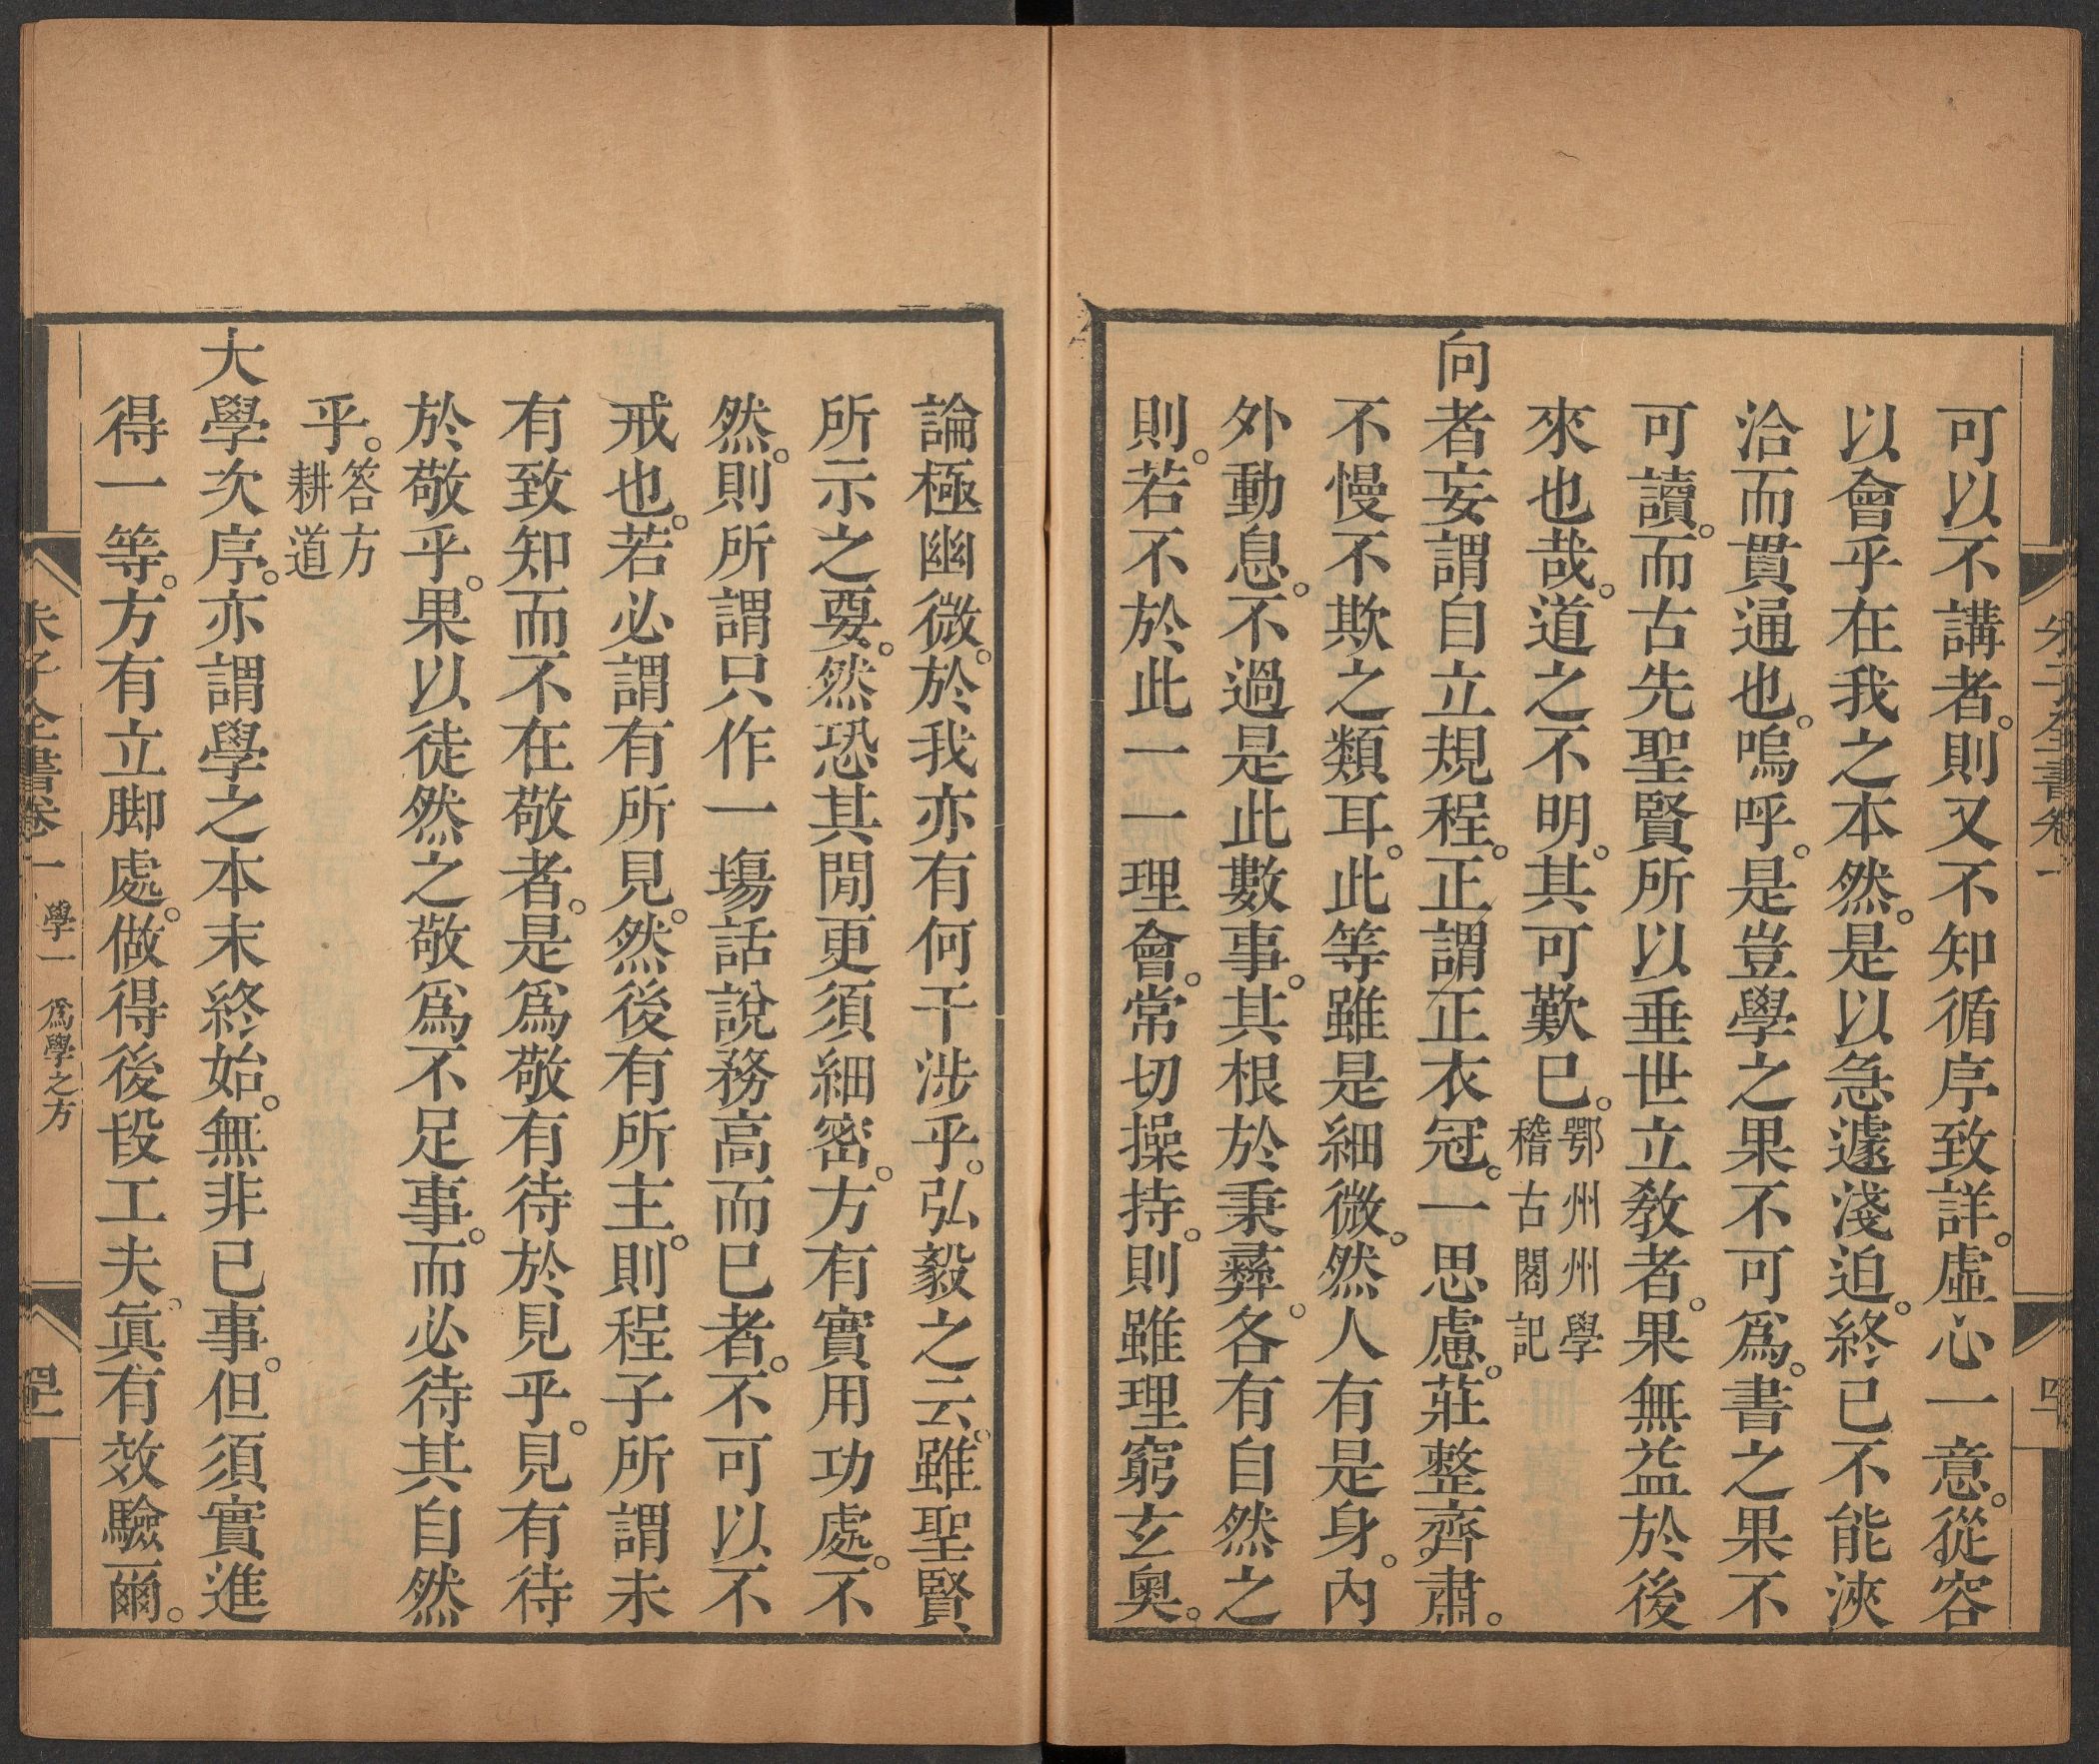 可以不講者。則又不知循序致詳。虛心一意。從容
以會乎在我之本然。是以急遽淺迫。終已不能浹
洽而貫通也。嗚呼。是豈學之果不可爲。書之果不
可讀。而古先聖賢所以垂世立敎者。果無益於後
來也哉。道之不明。其可歎已。
鄂州州學
稽古閣記
向者妄謂自立規程。正謂正衣冠。一思慮。莊整齊肅。
不慢不欺之類耳。此等雖是細微。然人有是身。內
外動息。不過是此數事。其根於秉彝。各有自然之
則。若不於此一一理會。常切操持。則雖理窮玄奧。
論極幽微。於我亦有何干涉乎。弘毅之云。雖聖賢
所示之要。然恐其閒更須細密。方有實用功處。不
然。則所謂只作一塲話說務高而已者。不可以不
戒也。若必謂有所見。然後有所主。則程子所謂未
有致知而不在敬者。是爲敬有待於見乎。見有待
於敬乎。果以徒然之敬爲不足事。而必待其自然
乎。
答方
耕道
大學次序。亦謂學之本末終始。無非已事。但須實進
得一等。方有立脚處。做得後段工夫。眞有效驗爾。
朱子全書卷一 學一 爲學之方